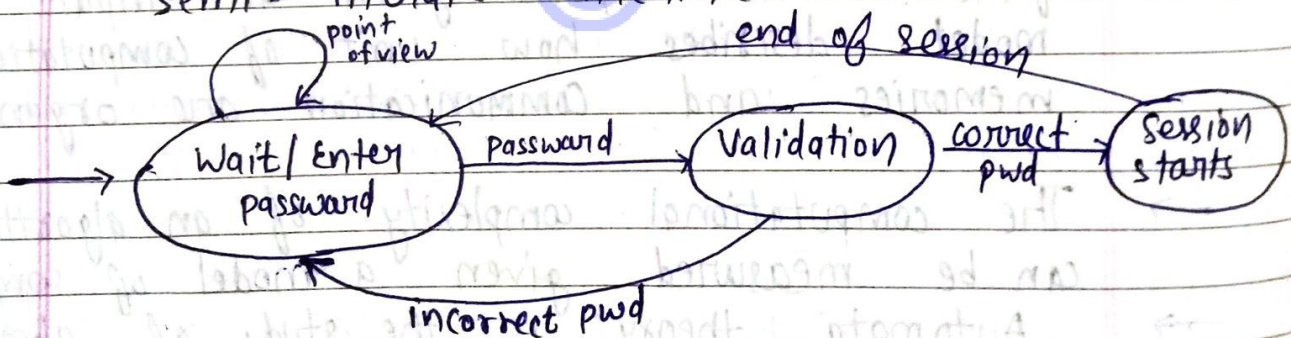 point
of view
end of session
Wait/Enter
passward
Passward
Validation
correct
pwd
session
starts
incorrect pwd